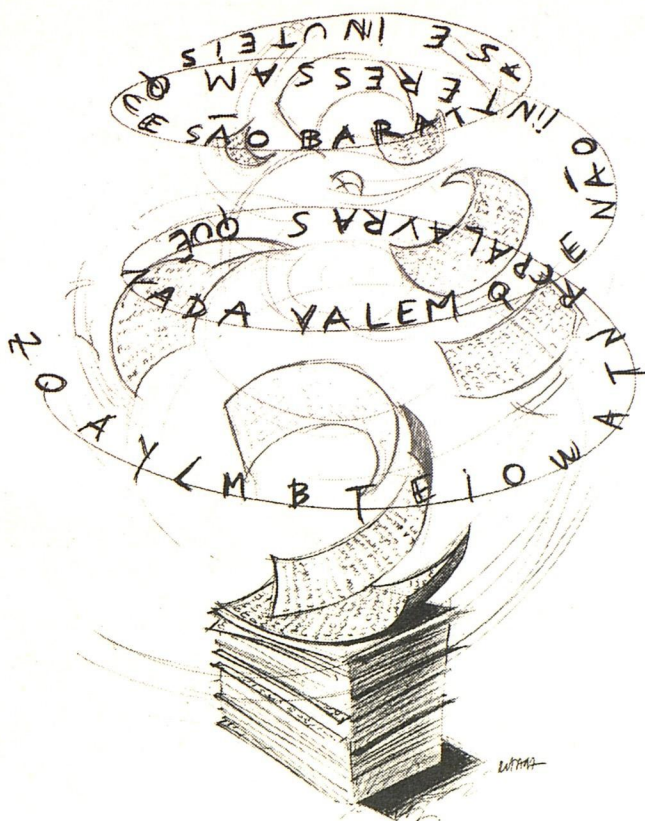 ZOAYLMBTEIOWATNRE
PALAVRAS QUE
NADA VALEM Q
E NÃO
INTERESSAM Q
UE SÃO BARAT
AS E INUTEIS